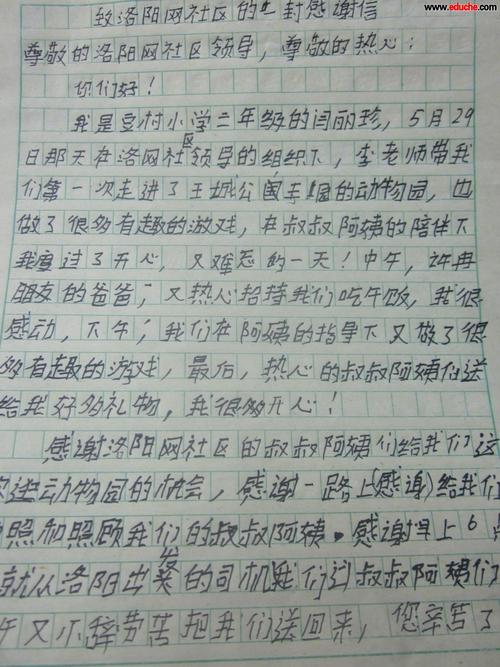 www.eduche.com
致洛阳网社区的一封感谢信
尊敬的洛阳网社区领导，尊敬的热心：
你们好！
我是豆村小学二年级的闫丽珍，5月29
日那天在洛网社区领导的组织下，李老师带我
们第一次走进了王城公园的动物园，也
做了很多有趣的游戏，在叔叔阿姨的陪伴下
我度过了开心，又难忘的一天！中午，许冉
朋友的爸爸，又热心招待我们吃午饭，我很
感动，下午，我们在阿姨的指导下又做了很
多有趣的游戏，最后，热心的叔叔阿姨们送
给我好多礼物，我很多开心！
感谢洛阳网社区的叔叔阿姨们给我们这
进动物园的机会，感谢一路上(感谢)给我们
照和照顾我们的叔叔阿姨。感谢早上6点
就从洛阳出发的司机我们过叔叔阿姨们
午又不辞劳苦把我们送回来，您辛苦了